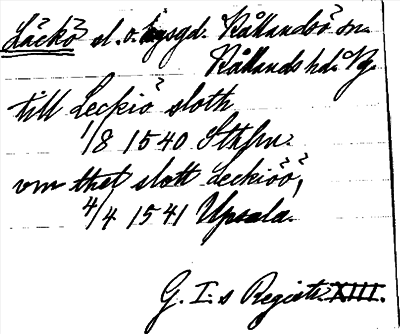 Läckö sl. o. kysgd. Kållandsö sn.
Kållands hd. Vg.
till Leckiö sloth
1/8 1540 Sthlm.
vm thet slott Leckiöö,
4/4 1541 Upsala.
G. I:s Registr. XIII.